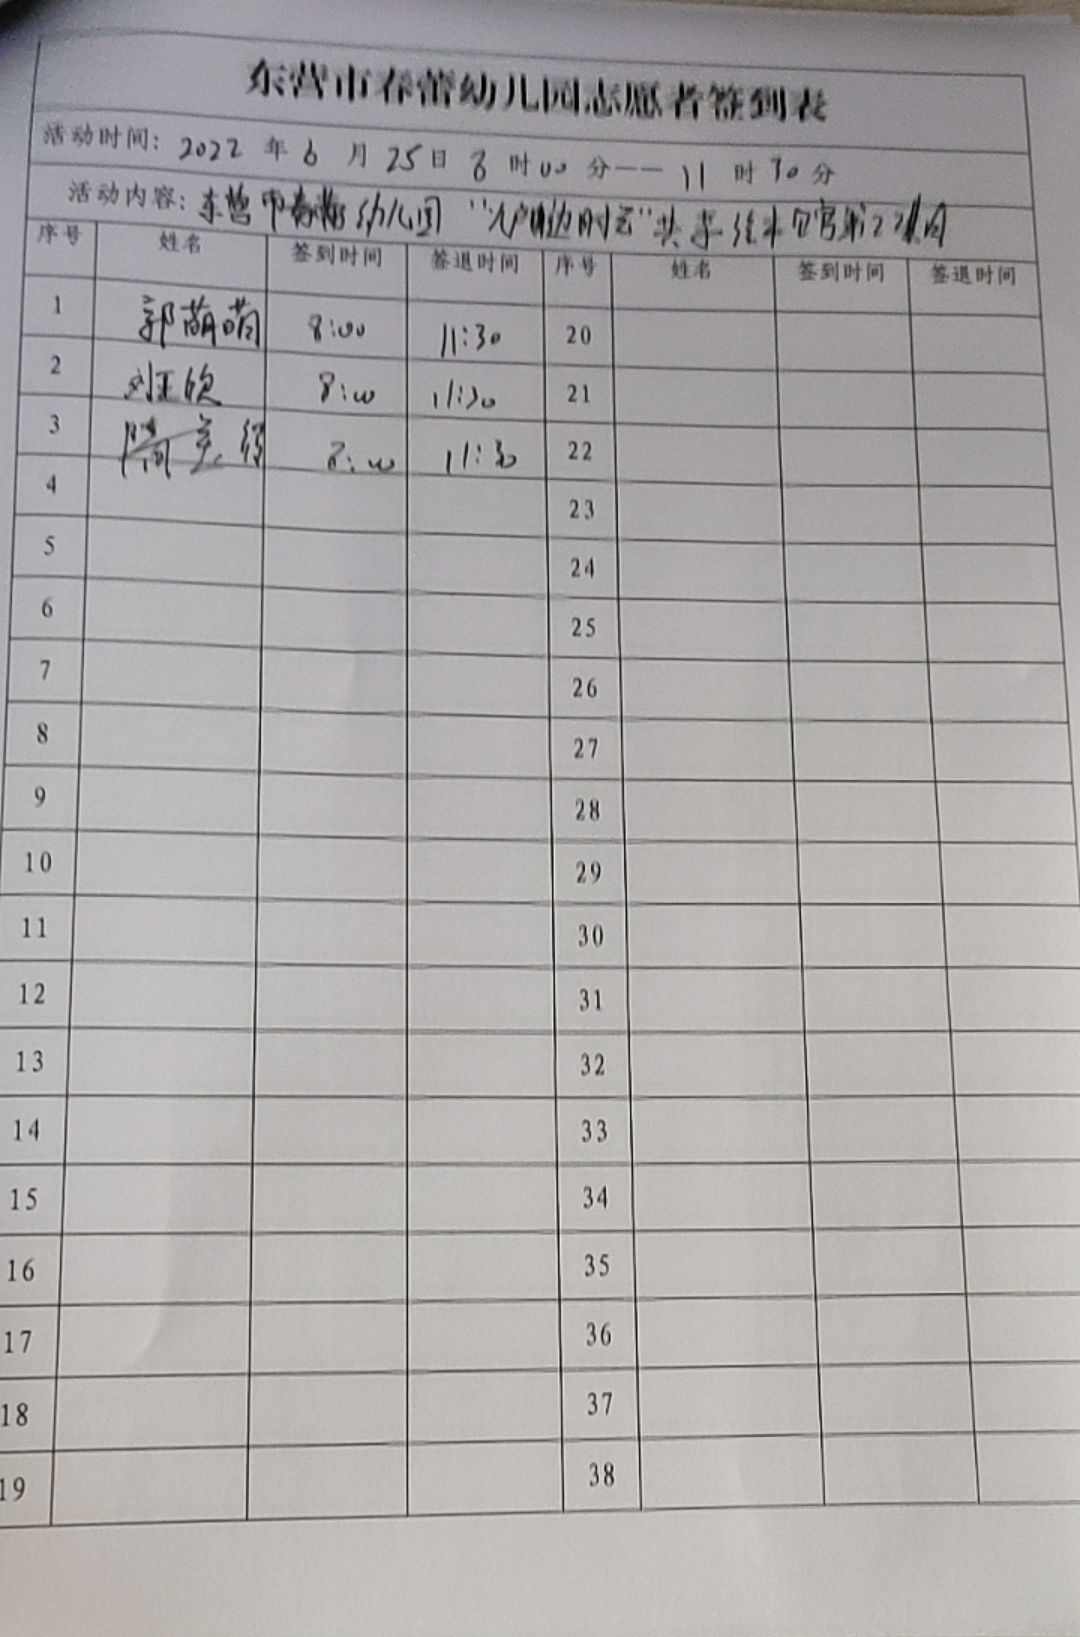 东营市春蕾幼儿园志愿者签到表
活动时间: 2022 年 6 月 25日 8 时00 分——11 时30分
活动内容: 东营市春蕾幼儿园
序号 姓名 签到时间 签退时间 序号 姓名 签到时间 签退时间
1 郭萌萌 8:00 11:30 20
2 刘正欣 8:00 11:30 21
3 8:00 11:30 22
4 23
5 24
6 25
7 26
8 27
9 28
10 29
11 30
12 31
13 32
14 33
15 34
16 35
17 36
18 37
19 38